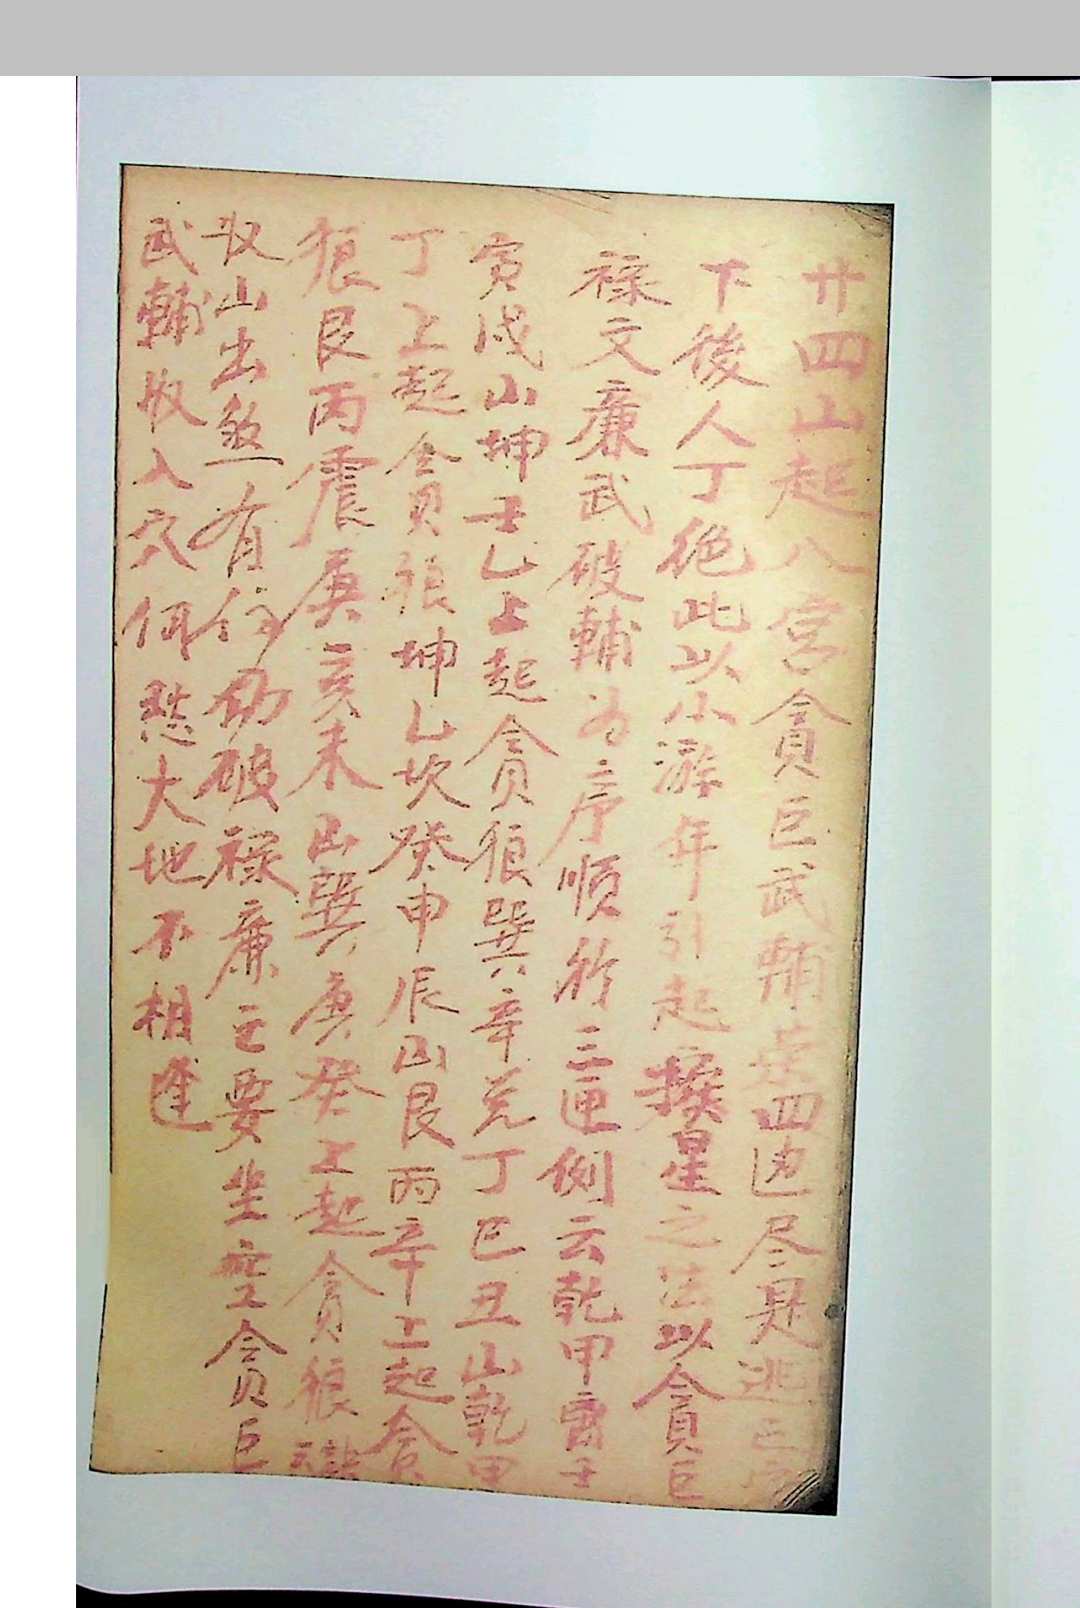 廿四山起八宮貪巨武輔四边尽是逃亡
下後人丁绝此以小游年引起換星之法以貪巨
祿文廉武破輔为序順行三匝例云乾甲離壬
寅戌山坤壬乙上起貪狼巽辛兑丁巳丑山乾甲
丁上起貪狼坤乙坎癸申辰山艮丙辛上起貪
狼艮丙震庚亥未山巽庚癸上起貪狼
收山出煞有何防破祿廉文要坐空貪巨
武輔收入穴何愁大地不相逢